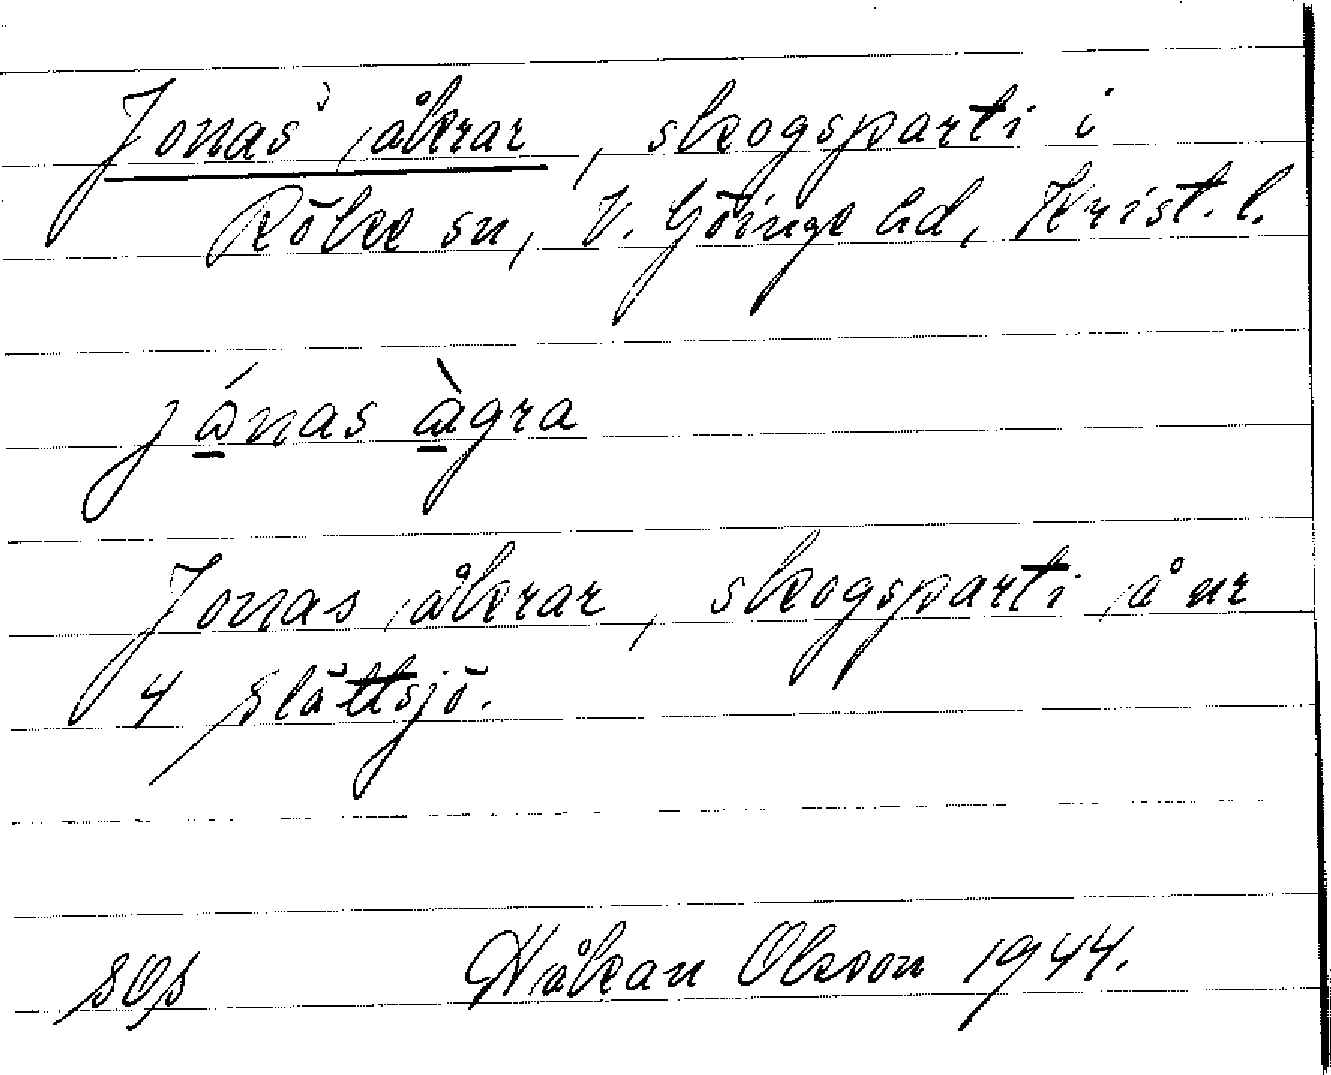 Jonas' åkrar, skogsparti i
Röke sn, V. Göinge hd, Krist. l.
jánas àgra
Jonas åkrar, skogsparti å nr
4 Slättsjö.
SOS Håkan Olsson 1944.